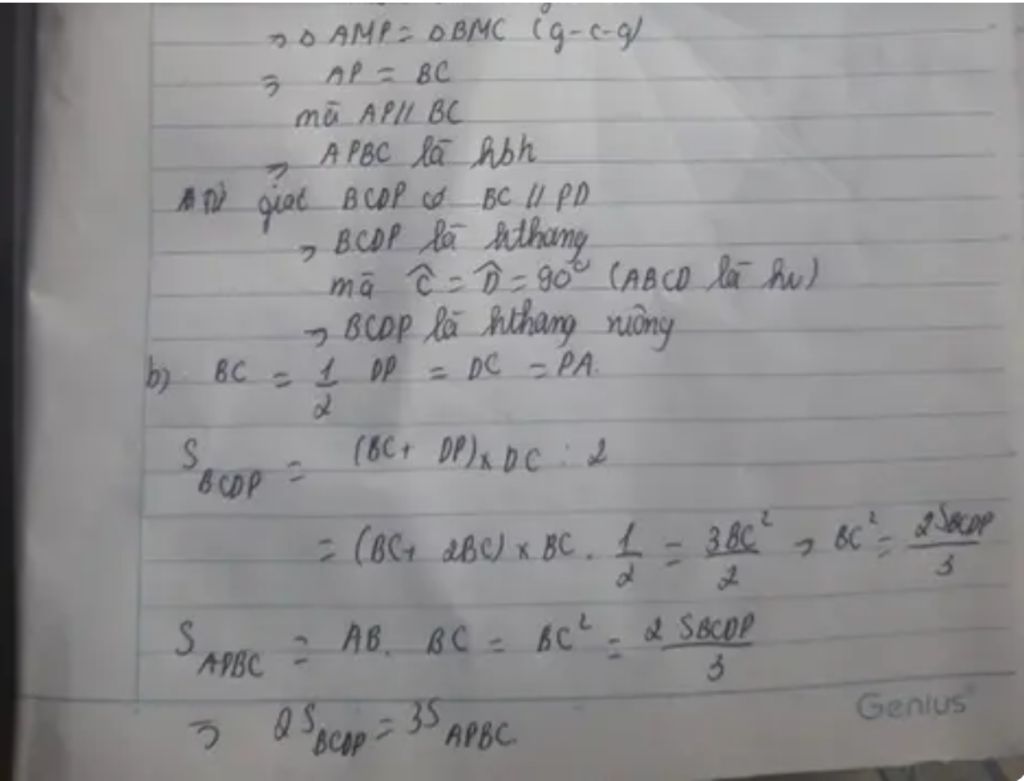 → Δ AMP = Δ BMC (g-c-g)
⇒ AP = BC
mà AP // BC
→ APBC là hbh
Tứ giác BCDP có BC // PD
→ BCDP là hthang
mà Ĉ = D̂ = 90° (ABCD là hv)
→ BCDP là hthang vuông
b) BC = 1/2 DP = DC = PA.
S_BCDP = (BC + DP) × DC : 2
= (BC + 2BC) × BC . 1/2 = 3BC²/2 → BC² = 2S_BCDP/3
S_APBC = AB. BC = BC² = 2 S_BCDP/3
⇒ 2S_BCDP = 3S_APBC.
Genius